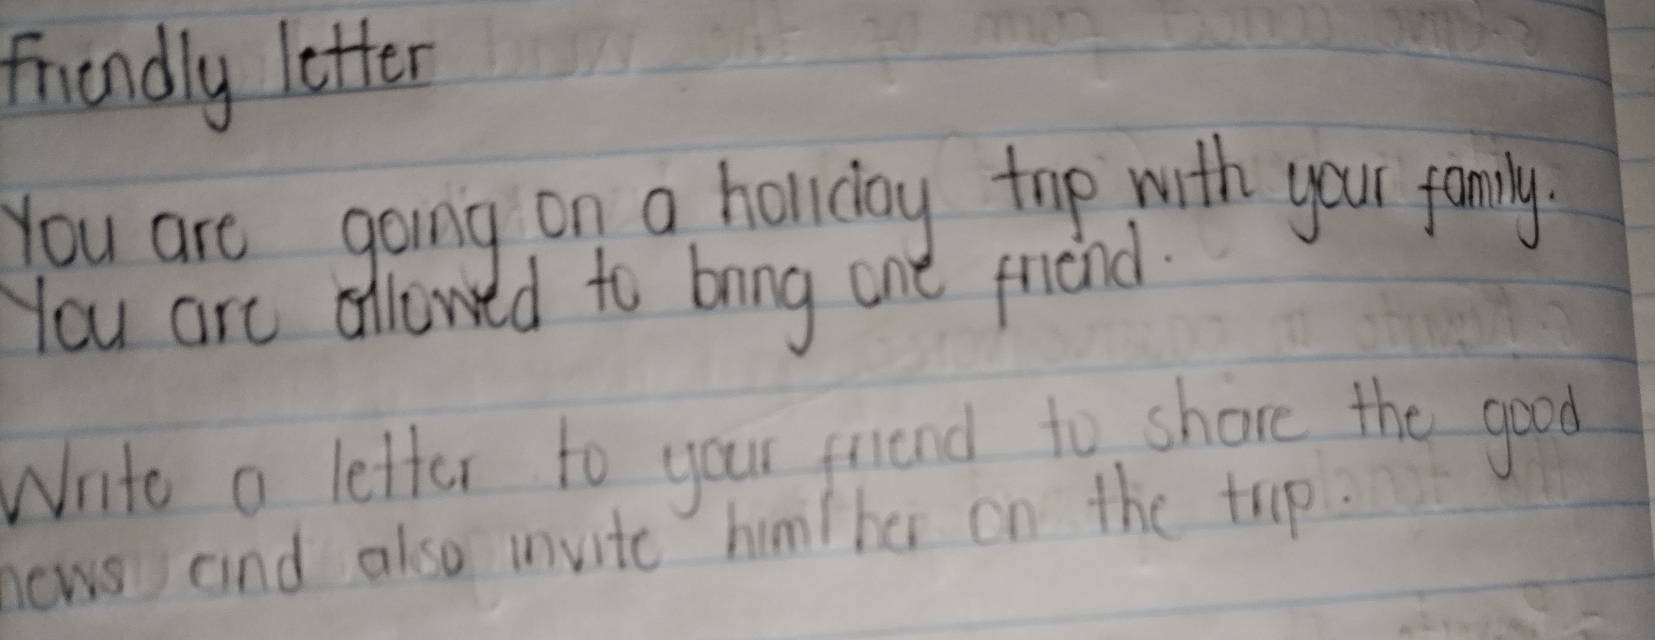 Friendly letter
You are going on a holiday trip with your family.
You are allowed to bring one friend.
Write a letter to your friend to share the good
news and also invite him/her on the trip.